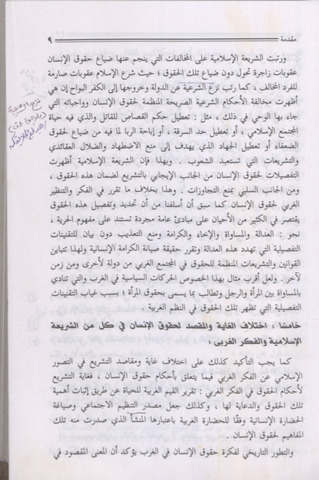 مقدمة ٩
ورتبت الشريعة الإسلامية على المخالفات التي ينجم عنها ضياع حقوق الإنسان
عقوبات زاجرة تحول دون ضياع تلك الحقوق ؛ حيث شرع الإسلام عقوبات صارمة
للفرد المخالف ، كما رتب نزع الشرعية عن الدولة وخروجها إلى الكفر البواح إن هي
أظهرت مخالفة الأحكام الشرعية الصريحة المنظمة لحقوق الإنسان وواجباته التي
جاء بها الوحي في ذلك ، مثل : تعطيل حكم القصاص للقاتل والذي فيه حياة
المجتمع الإسلامي ، أو تعطيل حد السرقة ، أو إباحة الربا لما فيه من ضياع لحقوق
الضعفاء أو تعطيل الجهاد الذي يهدف إلى منع الاضطهاد والضلال العقائدي
والتشريعات التي تستعبد الشعوب . وبهذا فإن الشريعة الإسلامية أظهرت
التفصيلات لحقوق الإنسان من الجانب الإيجابي بالتشريع لضمان هذه الحقوق ،
ومن الجانب السلبي بمنع التجاوزات . وهذا بخلاف ما تقرر في الفكر والتنظير
الغربي لحقوق الإنسان كما سبق أن أسلفنا من أن تحديد وتفصيل هذه الحقوق
يقتصر في الكثير من الأحيان على مبادئ عامة مجردة تستند على مفهوم الحرية ،
نحو : العدالة والمساواة والإخاء والكرامة ومنع التعذيب دون بيان للتقنينات
التفصيلية التي تهدد هذه العدالة وتقرر حقيقة صيانة الكرامة الإنسانية ولهذا تتباين
القوانين والتشريعات المنظمة للحقوق في المجتمع الغربي من دولة لأخرى ومن زمن
لآخر . ولعل أقرب مثال بهذا الخصوص الحركات السياسية في الغرب والتي تنادي
بالمساواة بين المرأة والرجل وتطالب بما يسمى بحقوق المرأة ؛ بسبب غياب التقنينات
التفصيلية التي تظهر تلك الحقوق في النظم الغربية .
خامسًا : اختلاف الغاية والمقصد لحقوق الإنسان في كل من الشريعة
الإسلامية والفكر الغربي :
كما يجب التأكيد كذلك على اختلاف غاية ومقاصد التشريع في التصور
الإسلامي عن الفكر الغربي فيما يتعلق بأحكام حقوق الإنسان ، فغاية التشريع
لأحكام الحقوق في الفكر الغربي : تقرير القيم الغربية للحياة عن طريق إثبات أهمية
تلك الحقوق والدعاية لها ، وكذلك جعل مصدر التنظيم الاجتماعي وصياغة
الحضارة الإنسانية وفقًا للحضارة الغربية باعتبارها المنشأ الذي صدرت منه تلك
المفاهيم لحقوق الإنسان .
والتطور التاريخي لفكرة حقوق الإنسان في الغرب يؤكد أن المعنى المقصود في